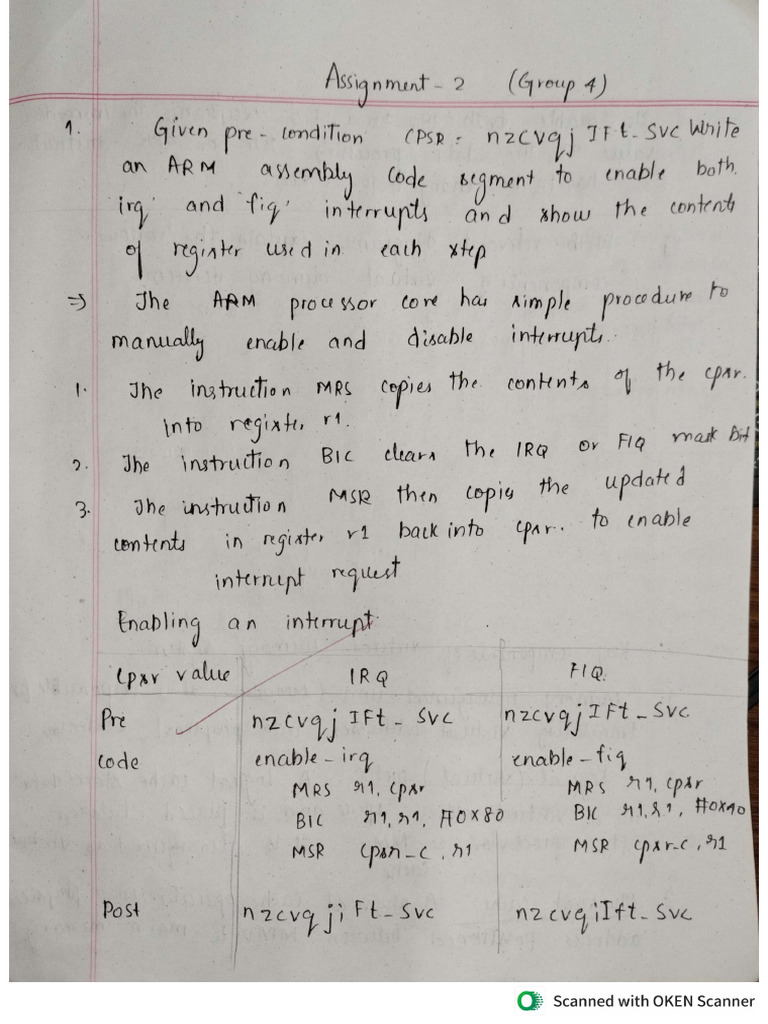 Assignment - 2 (Group 4)
1. Given pre-condition CPSR = nzcvqj IFt_SVC Write
an ARM assembly code segment to enable both
'irq' and 'fiq' interrupts and show the contents
of register used in each step
⇒ The ARM processor core has simple procedure to
manually enable and disable interrupts.
1. The instruction MRS copies the contents of the cpsr.
into register r1.
2. The instruction BIC clears the IRQ or FIQ mask bit
3. The instruction MSR then copies the updated
contents in register r1 back into cpsr. to enable
interrupt request
Enabling an interrupt
Cpsr value IRQ FIQ.
Pre nzcvqj IFt_SVC nzcvqj IFt_SVC
code enable-irq enable-fiq
MRS r1, cpsr MRS r1, cpsr
BIC r1, r1, #0x80 BIC r1, r1, #0x40
MSR cpsr_c, r1 MSR cpsr_c, r1
Post nzcvqjiFt_SVC nzcvqiIft_SVC
Scanned with OKEN Scanner